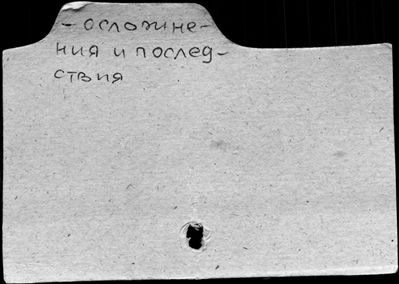 - осложне-
ния и послед-
ствия